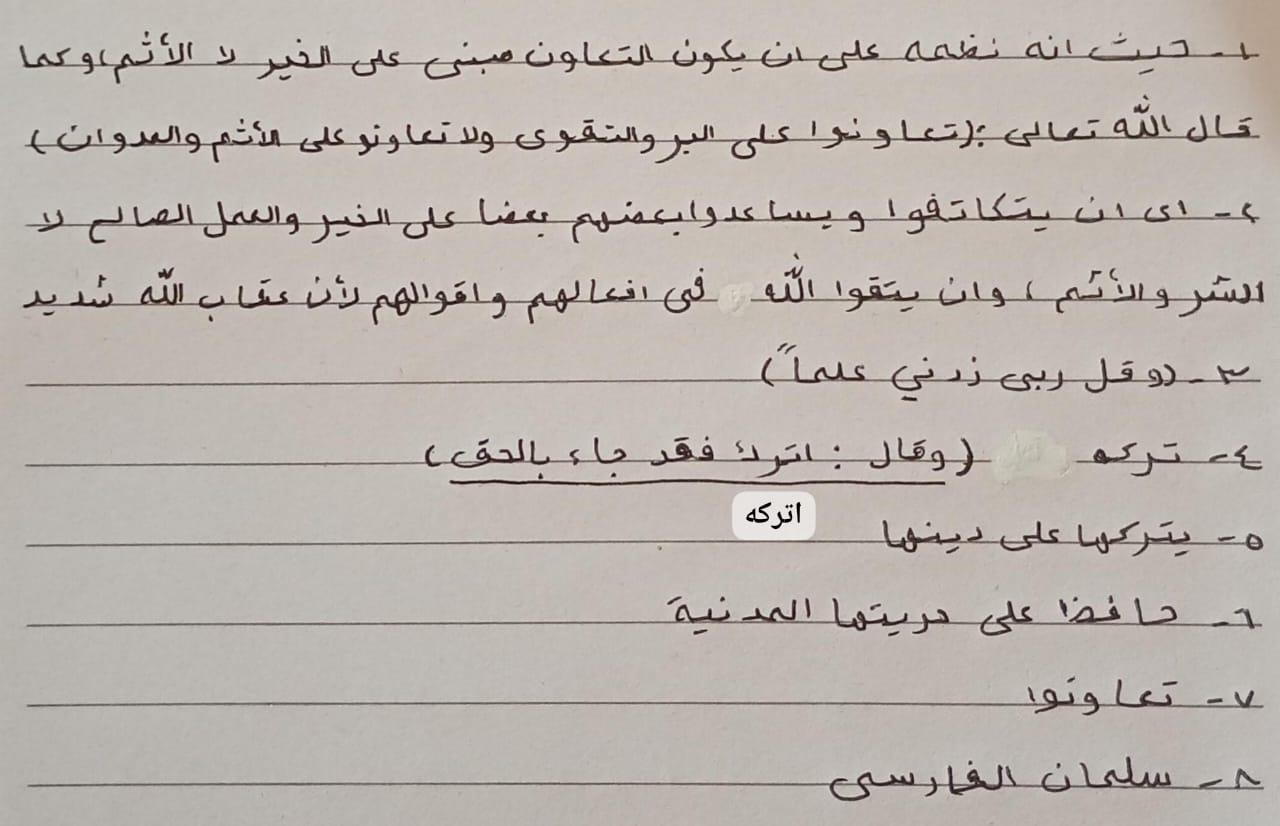 ١- حيث انه نظمه على ان يكون التعاون مبنى على الخير لا الأثم، وكما
قال الله تعالى: (تعاونوا على البر والتقوى ولا تعاونو على الأثم والعدوان)
٢- اى ان يتكاتفوا ويساعدوا بعضهم بعضا على الخير والعمل الصالح لا
الشر والأثم، وان يتقوا الله فى افعالهم واقوالهم لأن عقاب الله شديد
٣- (وقل ربى زدني علماً)
٤- تركه (وقال: اترك فقد جاء بالحق)
اتركه
٥- يتركها على دينها
٦- حافظا على حريتها المدنية
٧- تعاونوا
٨- سلمان الفارسى